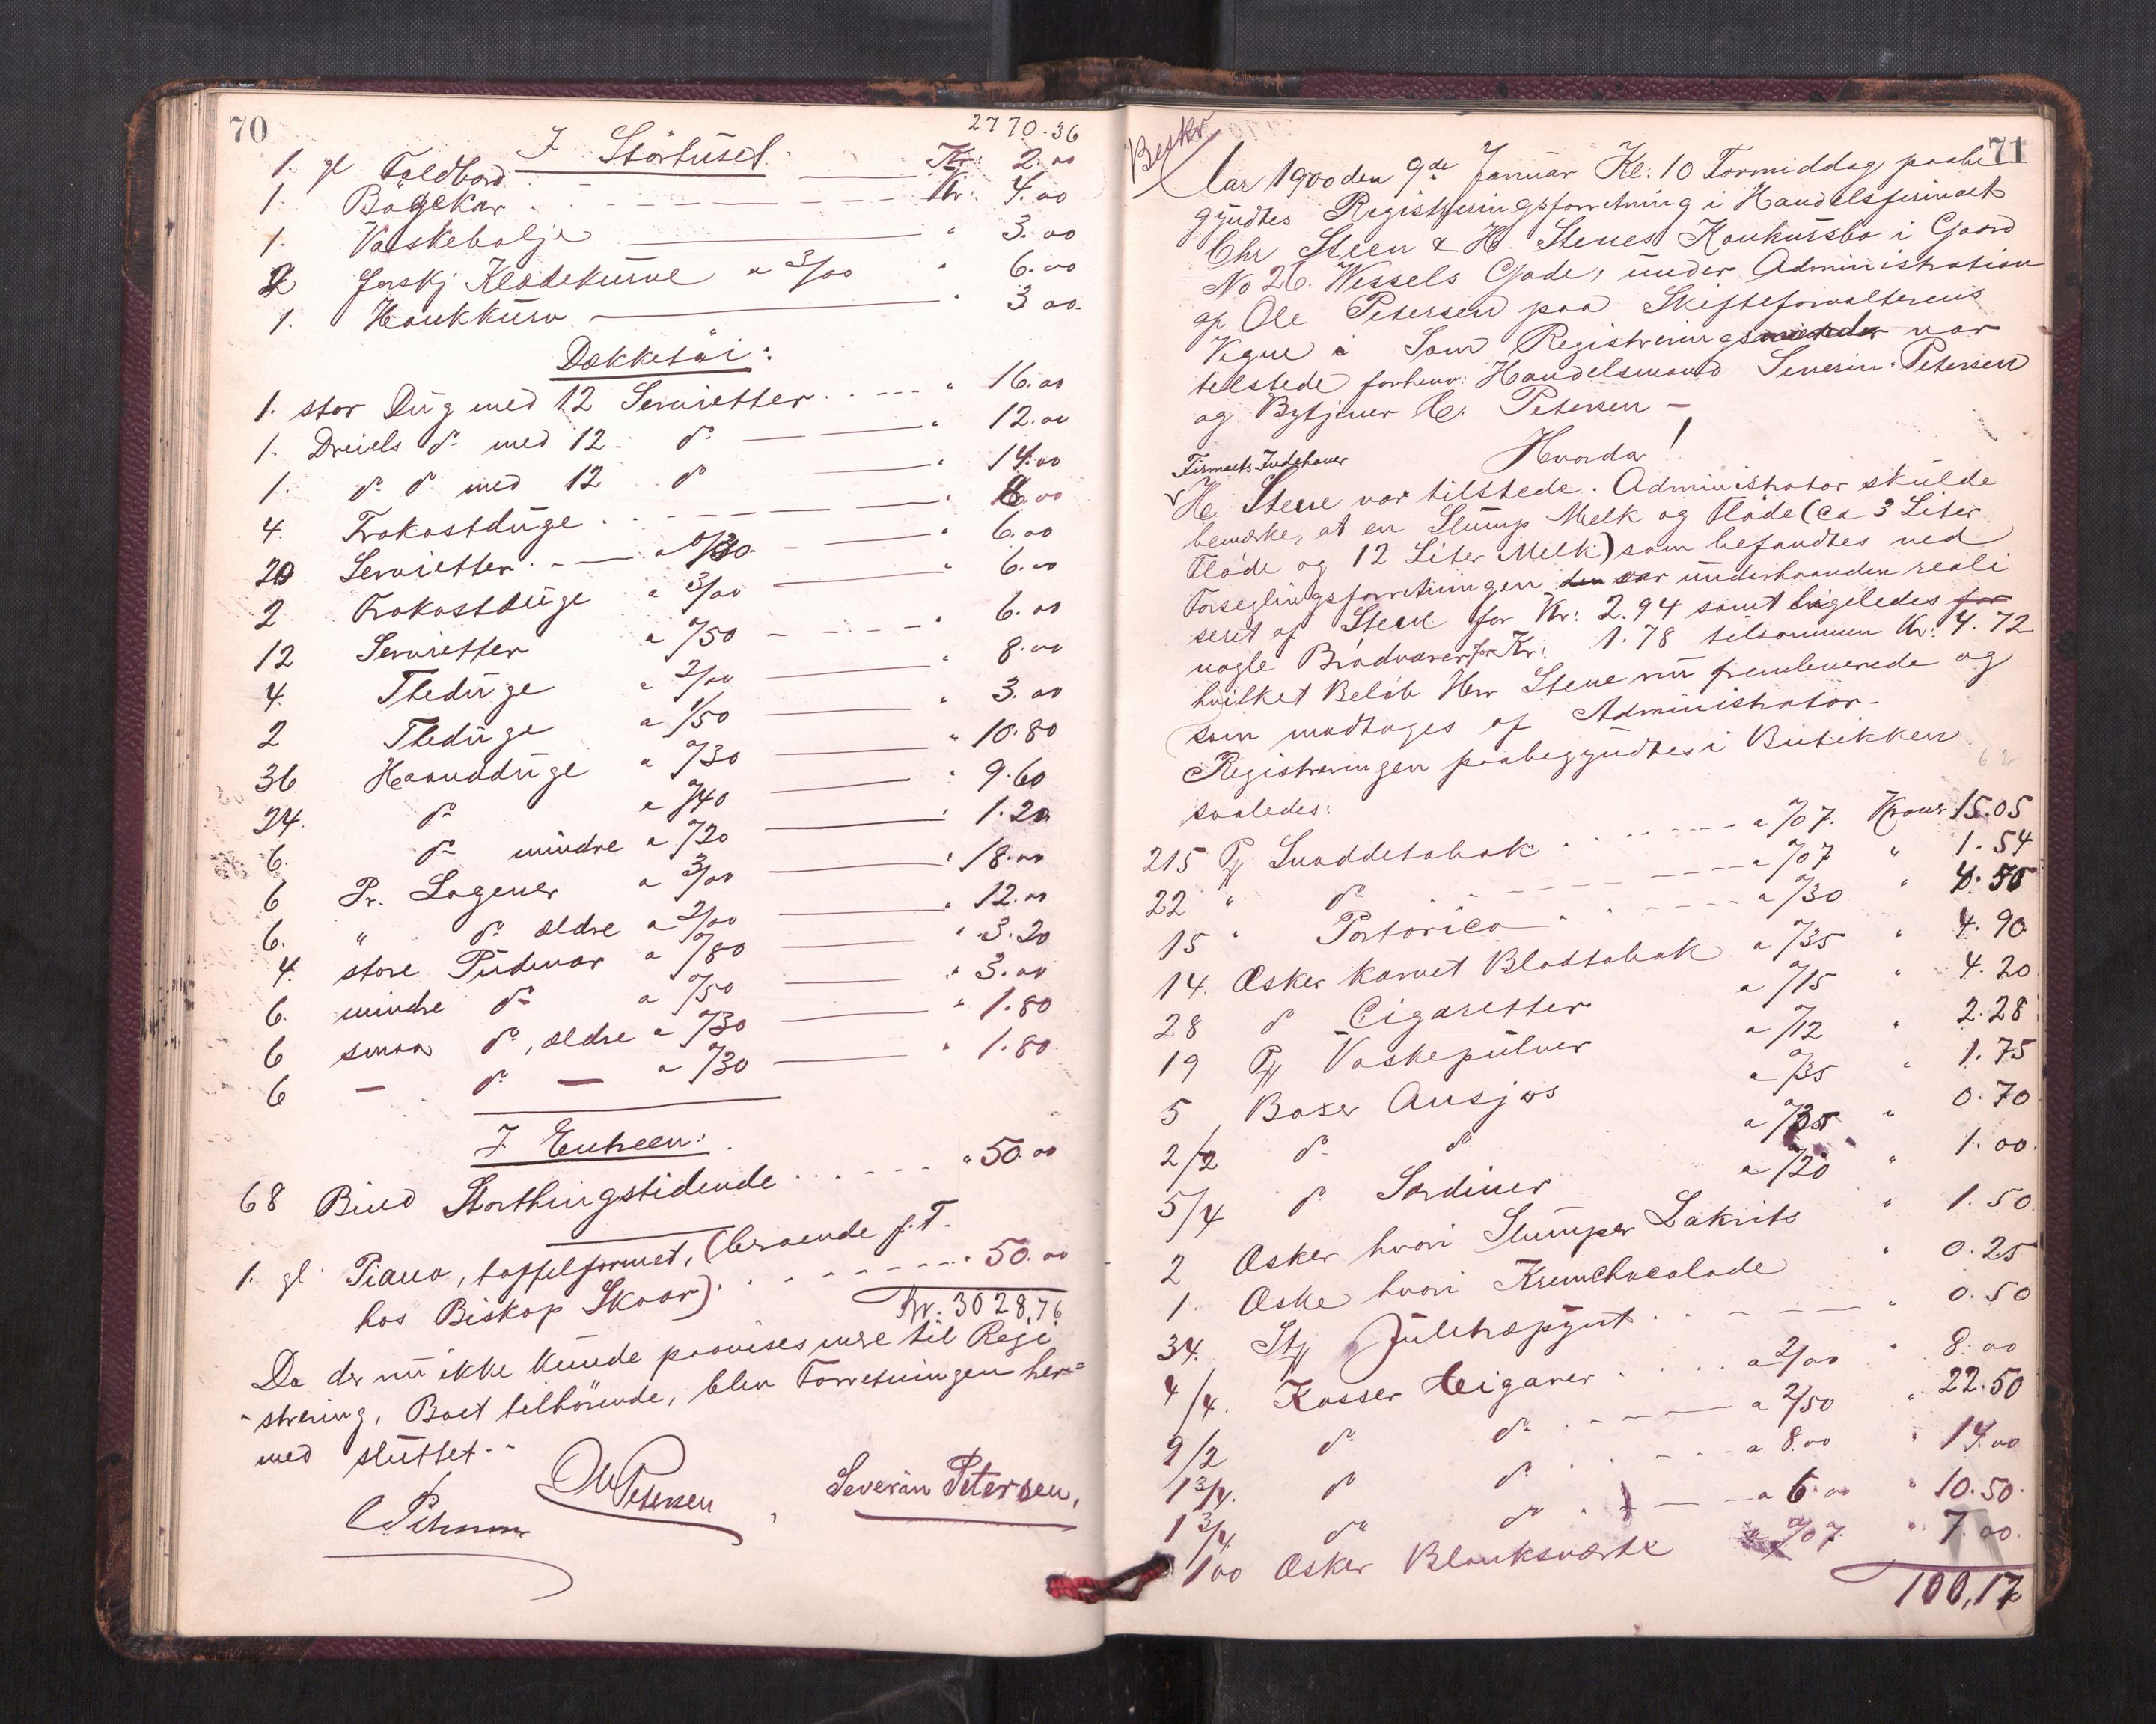 70
2770.36
I Störhuset.
1. gl Foldbord Kr: 2.00
1. Bøgekar Kr: 4.00
1. Vaskebalje " 3.00
2 forskj Klædekurve a 3/00 " 6.00
1. Hankkurv " 3.00.
Dækketøi:
1. stor Dug med 12 Servietter " 16.00
1. Dreiels do med 12 do " 12.00
1. do do med 12 do " 14.00
4. Frokostduge " 8.00
20 Servietter a /30 " 6.00
2 Frokostduge a 3/00 " 6.00
12 Servietter a /50 " 6.00
4. Theduge a 2/00 " 8.00
2 Theduge a 1/50 " 3.00
36 Haandduge a /30 " 10.80
24. do a /40 " 9.60
6. do mindre a /20 " 1.20
6 Pr. Lagener a 3/00 " 18.00
6. " do ældre a 2/00 " 12.00
4. store Pudevar a /80 " 3.20
6. mindre do a /50 " 3.00
6 smaa do, ældre a /30 " 1.80
6 — do — a /30 " 1.80
I Entreen:
68 Bind Storthingstidende " 50.00
1. gl. Piano, taffelformet, (beroende p.T.
hos Biskop Skaar) " 50.00
Kr. 3028,76
Da der nu ikke kunde paavises mere til Regi
strering, Boet tilhörende, blev Forretningen her=
med sluttet.
C Petersen Ole Petersen Severin Petersen,
Beskr
71
Aar 1900 den 9de Januar Kl: 10 Formiddag paabe
gyndtes Registreringsforretning i Handelsfirmaet
Chr Steen & H. Stenes Konkursbo i Gaard
No 26. Wessels Gade, under Administration
af Ole Petersen paa Skifteforvalterens
Vegne. Som Registreringsmænder var
telstede forhenv: Handelsmand Severin Petersen
og Bytjener C. Petersen —
Hvorda!
Firmaets Indehaver
H. Stene var tilstede. Administrator skulde
bemærke, at en Slump Melk og Fløde (ca 3 Liter
Fløde og 12 Liter Melk) som befandtes ved
Forseglingsforretningen den var underhaanden reali
seret af Stene for Kr: 2.94 samt ligeledes for
nogle Brødvarer for Kr: 1.78 tilsammen Kr: 4.72
hvilket Beløb Herr Stene nu fremleverede og
som modtages af Administrator.
Registreringen paabegyndtes i Butikken
saaledes:
215 Pk Snaddetobak a /07. Kroner 15.05
22 " do a /07 " 1.54
15 " Portorico a /30 " 4.50
14. Æsker karvet Bladtobak a /35 " 4.90
28 do Cigaretter a /15 " 4.20
19 Pk Vaskepulver a /12 " 2.28
5 Boxer Ansjos a /35 " 1.75
2/2 do do a /35 " 0.70
5/4 do Sardiner a /20 " 1.00.
2 Æsker hvori Slumper Lakrits " 1.50.
1. Æske hvori Kremchocolade " 0.25
34. Stk Juletræpynt " 0.50
4/4. Kasser Cigarer a 2/00 " 8.00
9/2 do do a 2/50 " 22.50
1 3/4. do do a 8.00 " 14.00
1 3/4 do do a 6.00 " 10.50.
100 Æsker Blanksværte a /07. " 7.00.
100,17